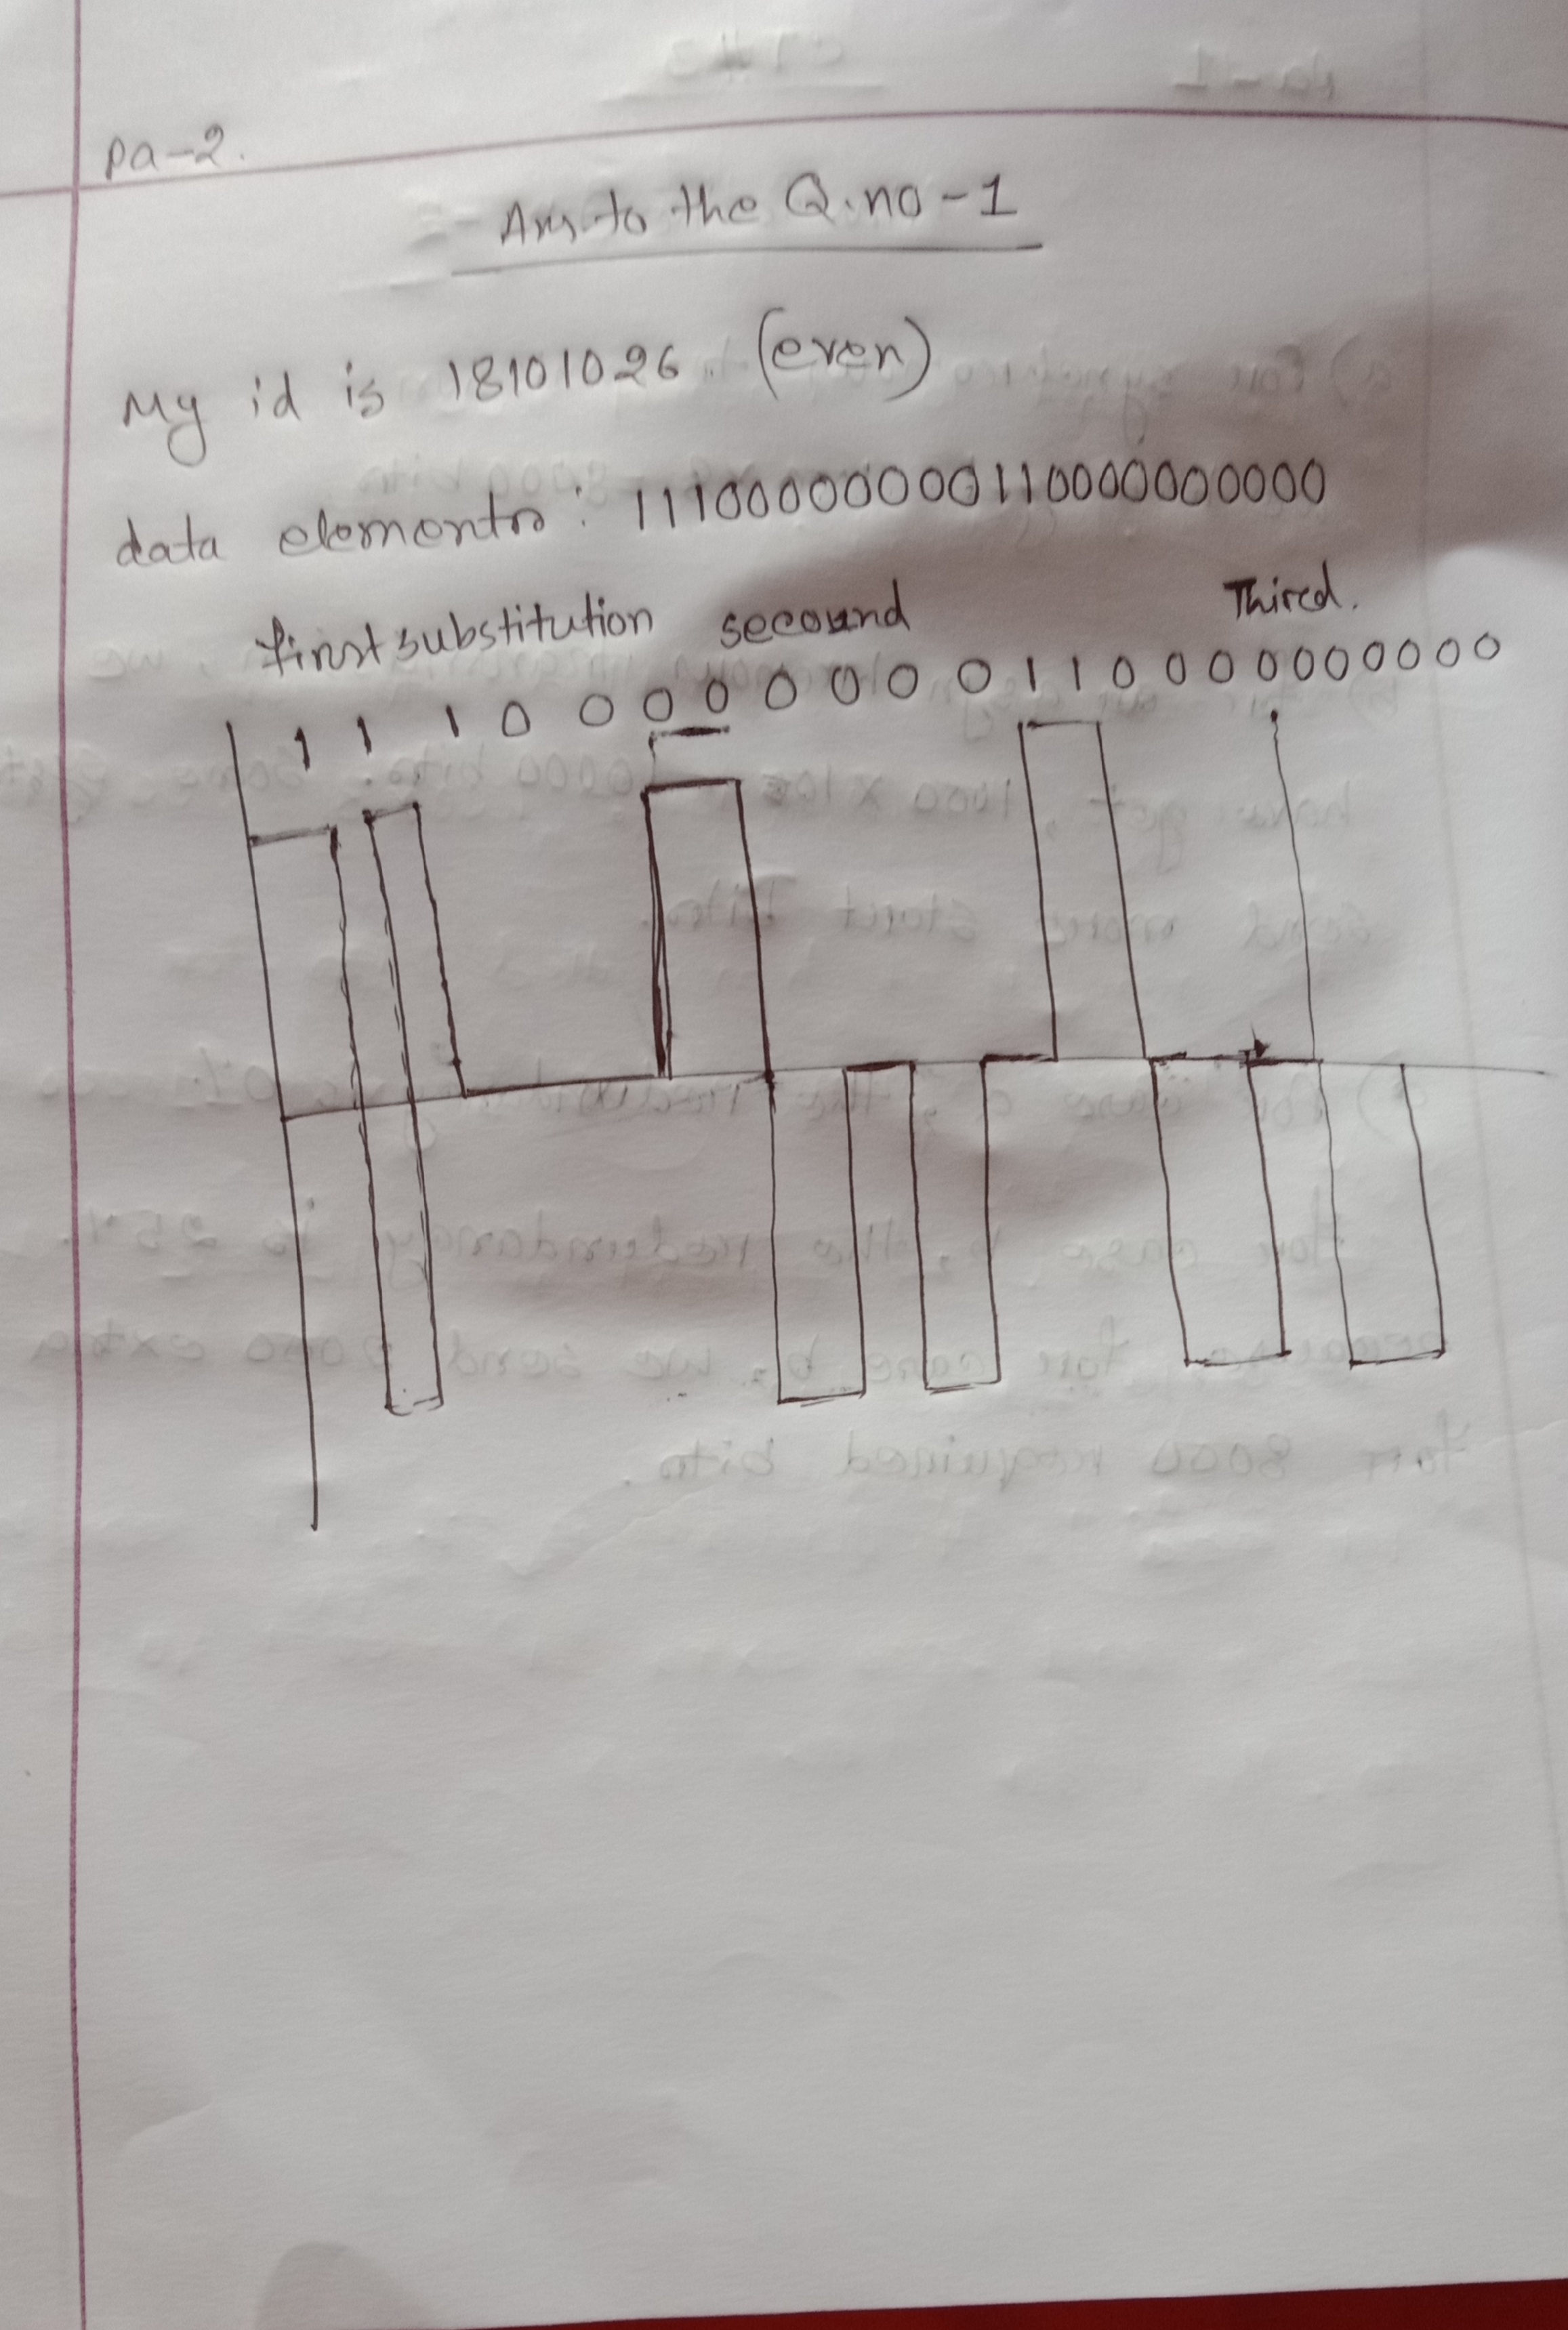 pa-2.
Ans to the Q.no-1
My id is 18101026 (even)
data elements: 11100000000110000000000
first substitution secound Thired.
1 1 1 0 0 0 0 0 0 0 0 1 1 0 0 0 0 0 0 0 0 0 0